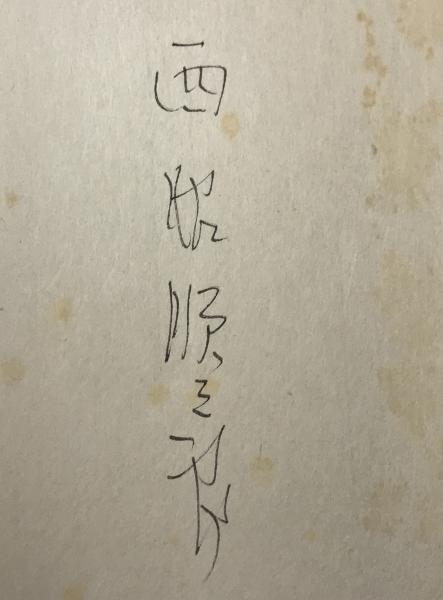 西脇順三郎